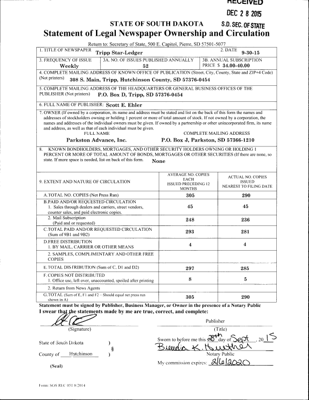 RECEIVED
DEC 28 2015
S.D. SEC. OF STATE
STATE OF SOUTH DAKOTA
Statement of Legal Newspaper Ownership and Circulation
Return to: Secretary of State, 500 E. Capitol, Pierre, SD 57501-5077
1. TITLE OF NEWSPAPER Tripp Star-Ledger 2. DATE 9-30-15
3. FREQUENCY OF ISSUE Weekly 3A. NO. OF ISSUES PUBLISHED ANNUALLY 52 3B. ANNUAL SUBSCRIPTION PRICE $ 34.00-40.00
4. COMPLETE MAILING ADDRESS OF KNOWN OFFICE OF PUBLICATION (Street, City, County, State and ZIP+4 Code)
(Not printers) 308 S Main, Tripp, Hutchinson County, SD 57376-0454
5. COMPLETE MAILING ADDRESS OF THE HEADQUARTERS OR GENERAL BUSINESS OFFICES OF THE
PUBLISHER (Not printers) P.O. Box D, Tripp, SD 57376-0454
6. FULL NAME OF PUBLISHER Scott E. Ehler
7. OWNER (If owned by a corporation, its name and address must be stated and list on the back of this form the names and
addresses of stockholders owning or holding 1 percent or more of total amount of stock. If not owned by a corporation, the
names and addresses of the individual owners must be given. If owned by a partnership or other unincorporated firm, its name
and address, as well as that of each individual must be given.
FULL NAME COMPLETE MAILING ADDRESS
Parkston Advance, Inc. P.O. Box J, Parkston, SD 57366-1210
8. KNOWN BONDHOLDERS, MORTGAGES, AND OTHER SECURITY HOLDERS OWNING OR HOLDING 1
PERCENT OR MORE OF TOTAL AMOUNT OF BONDS, MORTGAGES OR OTHER SECURITIES (If there are none, so
state. If more space is needed, list on back of this form. None
9. EXTENT AND NATURE OF CIRCULATION
AVERAGE NO. COPIES EACH ISSUED PRECEDING 12 MONTHS
ACTUAL NO. COPIES ISSUED NEAREST TO FILING DATE
A. TOTAL NO. COPIES (Net Press Run) 305 290
B. PAID AND/OR REQUESTED CIRCULATION
1. Sales through dealers and carriers, street vendors,
counter sales, and paid electronic copies. 45 45
2. Mail Subscription
(Paid and or requested) 248 236
C. TOTAL PAID AND/OR REQUESTED CIRCULATION
(Sum of 9B1 and 9B2) 293 281
D. FREE DISTRIBUTION
1. BY MAIL, CARRIER OR OTHER MEANS 4 4
2. SAMPLES, COMPLIMENTARY AND OTHER FREE
COPIES
E. TOTAL DISTRIBUTION (Sum of C, D1 and D2) 297 285
F. COPIES NOT DISTRIBUTED
1. Office use, left over, unaccounted, spoiled after printing 8 5
2. Return from News Agents
G. TOTAL (Sum of E, F1 and F2 - Should equal net press run
shown in A) 305 290
Statement must be signed by Publisher, Business Manager, or Owner in the presence of a Notary Public
I swear that the statements made by me are true, correct, and complete:
Publisher
(Signature) (Title)
State of South Dakota
Sworn to before me this 30th day of Sept, 2015
§
County of Hutchinson
Notary Public
(Seal)
My commission expires: 2/6/2020